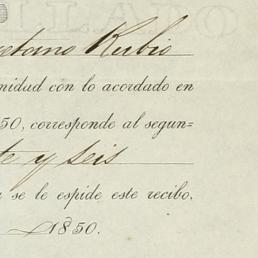 etano Rubio
nidad con lo acordado en
50, corresponde al segun-
te y seis
a se le espide este recibo.
1850.